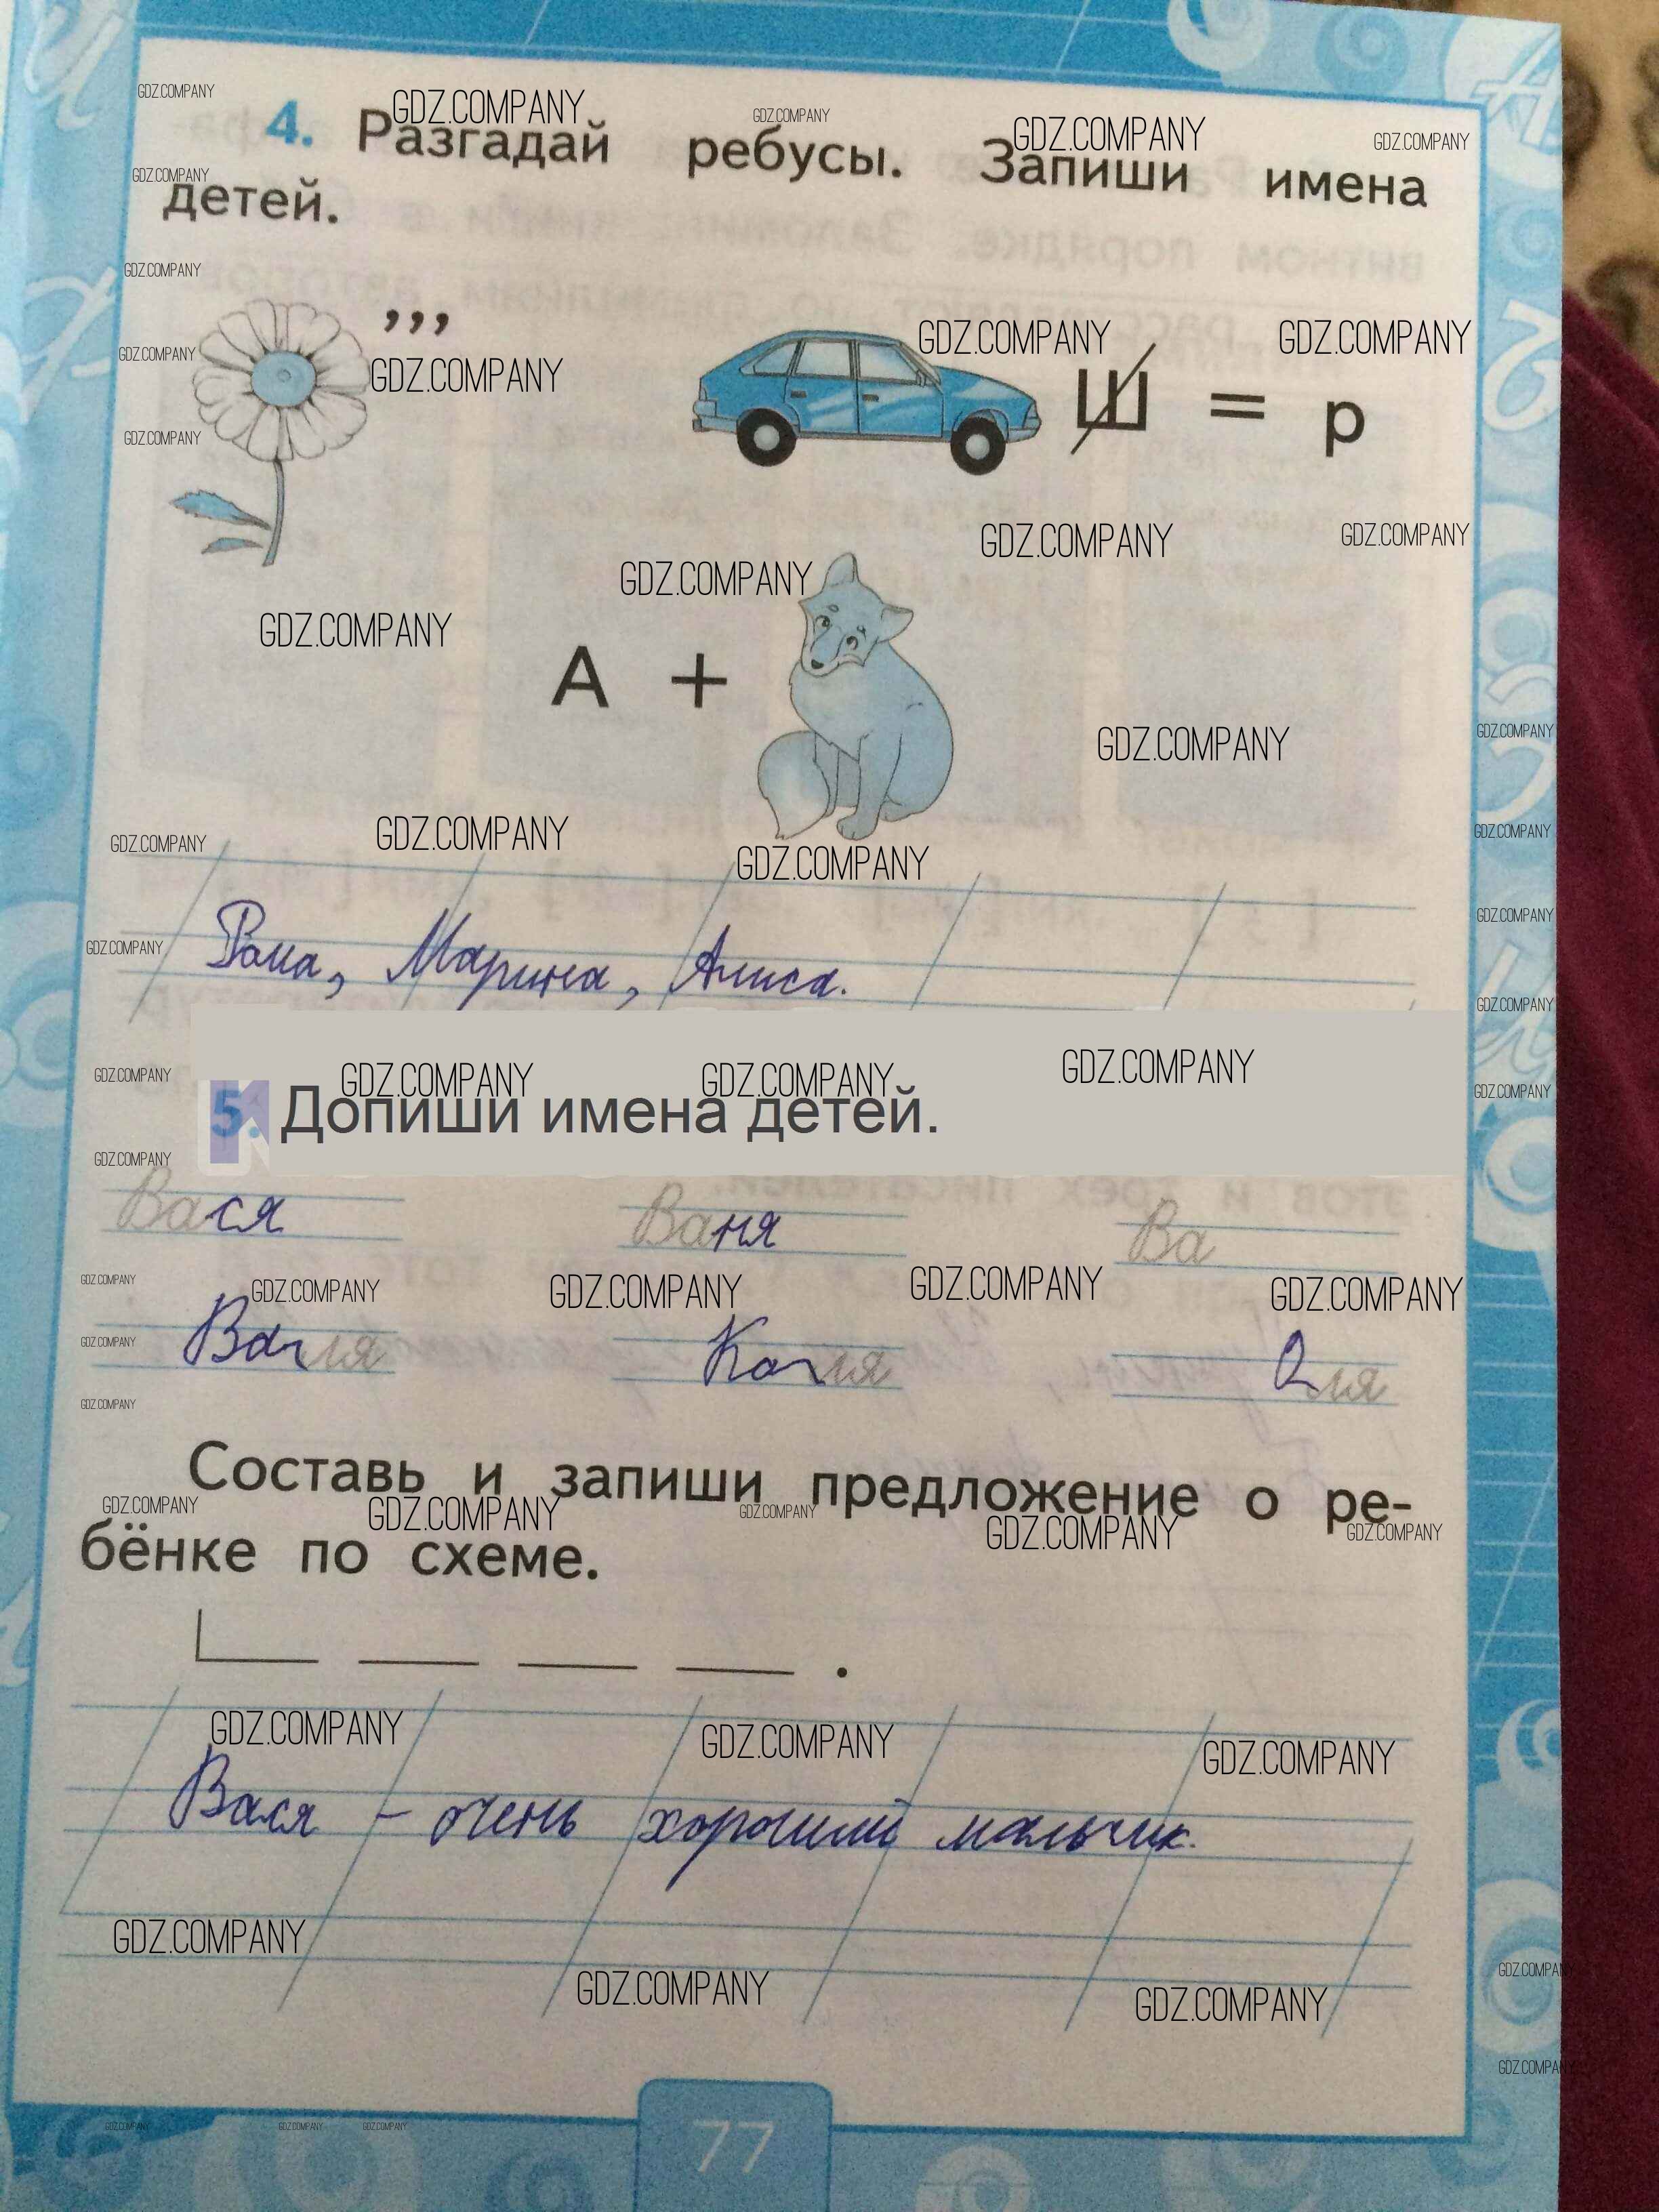 4. Разгадай ребусы. Запиши имена
детей.
,,,
Ш = р
А +
Рома, Марина, Алиса.
5. Допиши имена детей.
Вася Ваня Ва
Валя Коля Оля
Составь и запиши предложение о ре-
бёнке по схеме.
Вася - очень хороший мальчик.
77
GDZ.COMPANY